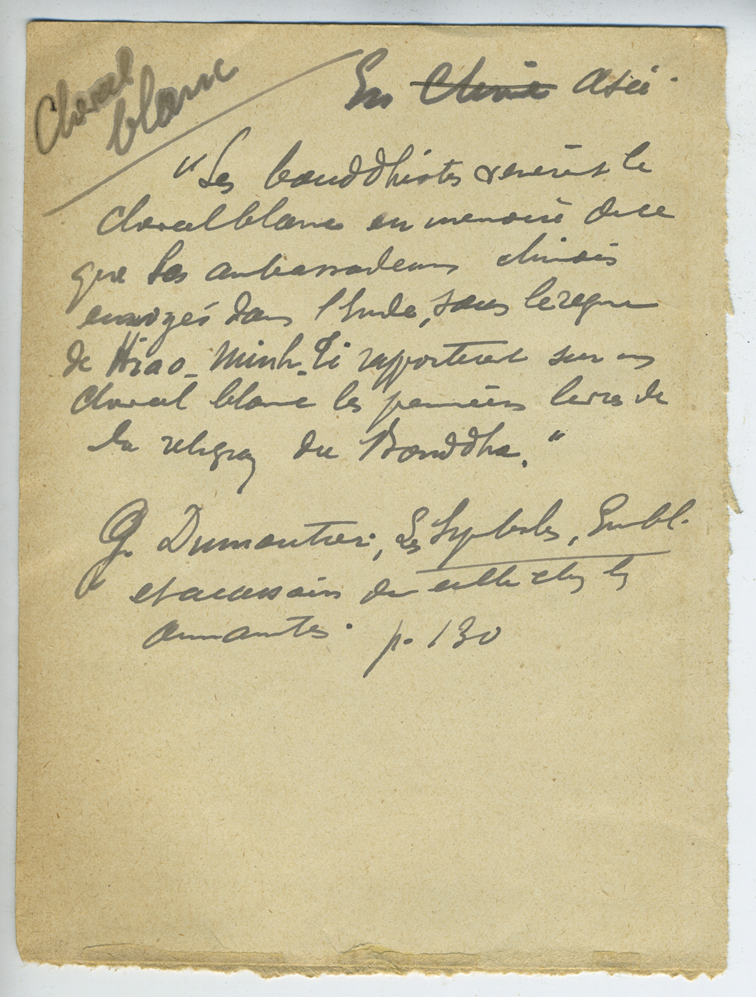 Cheval
blanc
En Chine Asie.
"Les bouddhistes révèrent le
cheval blanc en mémoire de ce
que les ambassadeurs chinois
envoyés dans l'Inde, sous le règne
de Hiao-Minh-Ti rapportèrent sur un
cheval blanc les premiers livres de
la religion du Bouddha."
G. Dumoutier, Les Symboles, Embl.
et accessoires du culte chez les
annamites. p. 130